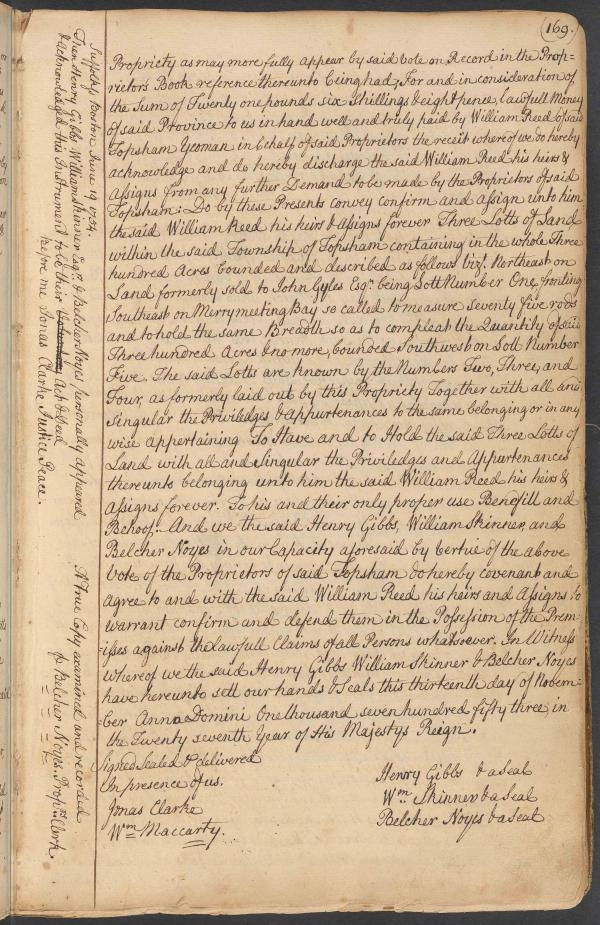 169.
Propriety as may more fully appear by said Vote on Record in the Prop=
rietors Book reference thereunto being had; For and in consideration of
the Sum of Twenty one pounds six Shillings & eight pence, lawfull Money
of said Province to us in hand well and truly paid by William Reed of said
Topsham Yeoman in behalf of said Proprietors the receit whereof we do hereby
acknowledge and do hereby discharge the said William Reed his heirs &
Assigns from any further Demand to be made by the Proprietors of said
Topsham: Do by these Presents convey confirm and assign unto him
the said William Reed his heirs & Assigns forever Three Lotts of Land
within the said Township of Topsham containing in the whole Three
hundred Acres bounded and described as follows vizt. Northeast on
Land formerly sold to John Gyles Esqr. being Lott Number One, fronting
Southeast on Merrymeeting Bay so called to measure seventy five rods
and to hold the same Breadth so as to compleat the Quantity of said
Three hundred Acres & no more, bounded Southwest on Lott Number
Five. The said Lotts are known by the Numbers Two, Three, and
Four, as formerly laid out by this Propriety Together with all and
Singular the Priviledges & Appurtenances to the same belonging or in any
wise appertaining To Have and to Hold the said Three Lotts of
Land with all and Singular the Priviledges and Appurtenances
thereunto belonging unto him the said William Reed his heirs &
Assigns forever. To his and their only proper use Benefitt and
Behoof. And we the said Henry Gibbs, William Skinner, and
Belcher Noyes in our Capacity aforesaid by vertue of the above
Vote of the Proprietors of said Topsham do hereby covenant and
agree to and with the said William Reed his heirs and Assigns to
warrant confirm and defend them in the Possession of the Prem=
=isses against the lawfull Claims of all Persons whatsoever. In Witness
whereof we the said Henry Gibbs William Skinner & Belcher Noyes
have hereunto sett our hands & Seals this thirteenth day of Novem=
=ber Anno Domini One thousand seven hundred fifty three, in
the Twenty seventh Year of His Majestys Reign.
Signed Sealed & delivered
In presence of us.
Jonas Clarke
Wm Maccarty.
Henry Gibbs & a Seal
Wm Skinner & a Seal
Belcher Noyes & a Seal
Suffolk ss Boston June 19 1754.
Then Henry Gibbs William Skinner Esqrs. & Belcher Noyes personally appeared
& acknowledged this Instrument to be their Act & Deed
before me Jonas Clarke Justice Peace.
A True Copy examined and recorded
p Belcher Noyes. Proprs. Clerk